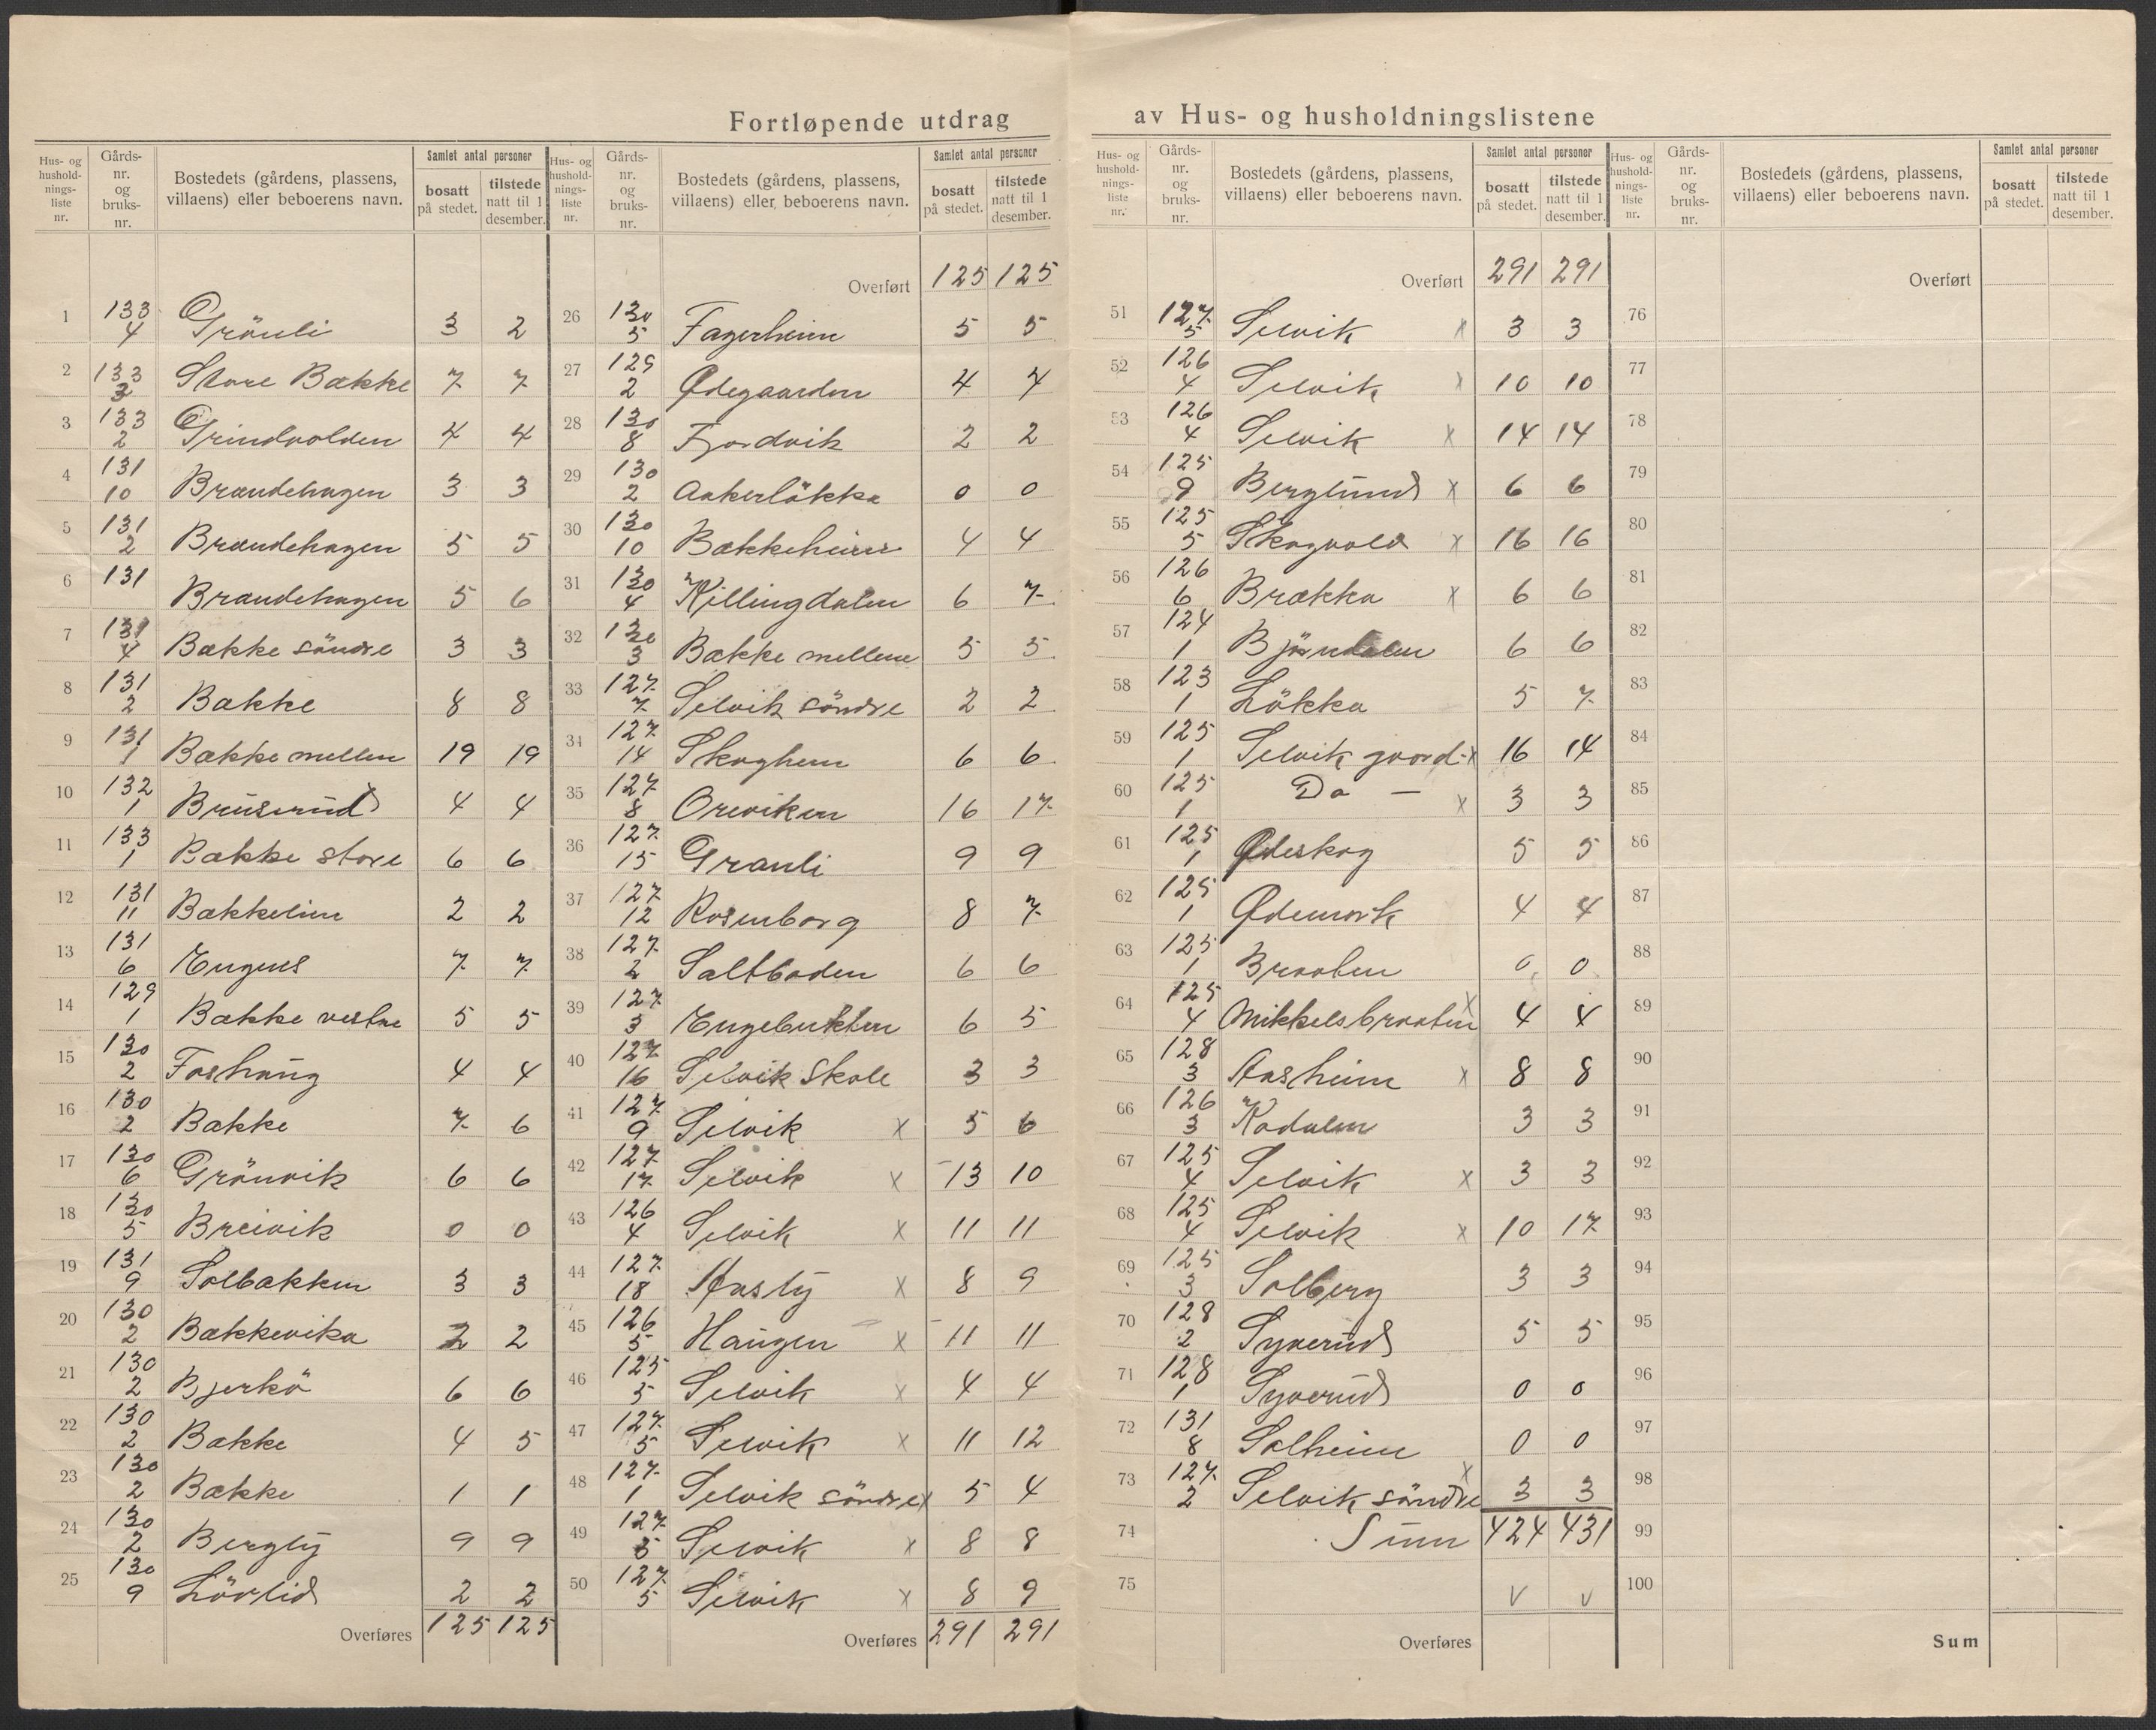 Fortløpende utdrag av Hus- og husholdningslistene
Hus- og hushold-nings-liste nr.
Gårds-nr. og bruks-nr.
Bostedets (gårdens, plassens, villaens) eller beboerens navn.
Samlet antal personer
bosatt på stedet.
tilstede natt til 1 desember.
1 133 4 Gröuli 3 2
2 133 3 Store Bække 7 7
3 133 2 Grindvolden 4 4
4 131 10 Brændehagen 3 3
5 131 2 Brændehagen 5 5
6 131 Brændehagen 5 6
7 131 4 Bække söndre 3 3
8 131 2 Bække 8 8
9 131 1 Bække mellem 19 19
10 132 1 Bruserud 4 4
11 133 1 Bække store 6 6
12 131 11 Bækkelim 2 2
13 131 6 Engens 7 7
14 129 1 Bække vestre 5 5
15 130 2 Foshaug 4 4
16 130 2 Bække 7 6
17 130 6 Grönvik 6 6
18 130 5 Breivik 0 0
19 131 9 Solbakken 3 3
20 130 2 Bækkevika 2 2
21 130 2 Bjerkö 6 6
22 130 2 Bække 4 5
23 130 2 Bække 1 1
24 130 2 Bergly 9 9
25 130 9 Lövlid 2 2
Overføres 125 125
Hus- og hushold-nings-liste nr.
Gårds-nr. og bruks-nr.
Bostedets (gårdens, plassens, villaens) eller beboerens navn.
Samlet antal personer
bosatt på stedet.
tilstede natt til 1 desember.
Overført 125 125
26 130 5 Fagerheim 5 5
27 129 2 Ødegaarden 4 4
28 130 8 Fjordvik 2 2
29 130 2 Aakerlökka 0 0
30 130 10 Bækkeheim 4 4
31 130 4 Killingdalen 6 7
32 130 3 Bække mellem 5 5
33 127 7 Selvik söndre 2 2
34 127 14 Skoghem 6 6
35 127 8 Oreviken 16 17
36 127 15 Granli 9 9
37 127 12 Rosenborg 8 7
38 127 2 Saltboden 6 6
39 127 3 Engebukten 6 5
40 127 16 Selvik Skole 3 3
41 127 9 Selvik x 5 6
42 127 17 Selvik x 13 10
43 126 4 Selvik x 11 11
44 127 18 Aasly x 8 9
45 126 5 Haugen x 11 11
46 125 5 Selvik x 4 4
47 127 5 Selvik x 11 12
48 127 1 Selvik söndre x 5 4
49 127 5 Selvik x 8 8
50 127 5 Selvik x 8 9
Overføres 291 291
Hus- og hushold-nings-liste nr.
Gårds-nr. og bruks-nr.
Bostedets (gårdens, plassens, villaens) eller beboerens navn.
Samlet antal personer
bosatt på stedet.
tilstede natt til 1 desember.
Overført 291 291
51 127 5 Selvik x 3 3
52 126 4 Selvik x 10 10
53 126 4 Selvik x 14 14
54 125 9 Berglund x 6 6
55 125 5 Skogvold x 16 16
56 126 6 Brækka x 6 6
57 124 1 Bjöndalen 6 6
58 123 1 Lökka 5 7
59 125 1 Selvik gaard x 16 14
60 125 1 Do — x 3 3
61 125 1 Ødeskog 5 5
62 125 1 Ødemark 4 4
63 125 1 Braaten 0 0
64 125 4 Mikkelsbraaten x 4 4
65 128 3 Aasheim x 8 8
66 126 3 Kodalen 3 3
67 125 4 Selvik x 3 3
68 125 4 Selvik x 10 17
69 125 3 Solberg 3 3
70 128 2 Syverud 5 5
71 128 1 Syverud 0 0
72 131 8 Solheim 0 0
73 127 2 Selvik söndre x 3 3
74 Sum 424 431
75 v v
Overføres
Hus- og hushold-nings-liste nr.
Gårds-nr. og bruks-nr.
Bostedets (gårdens, plassens, villaens) eller beboerens navn.
Samlet antal personer
bosatt på stedet.
tilstede natt til 1 desember.
Overført
76
77
78
79
80
81
82
83
84
85
86
87
88
89
90
91
92
93
94
95
96
97
98
99
100
Sum